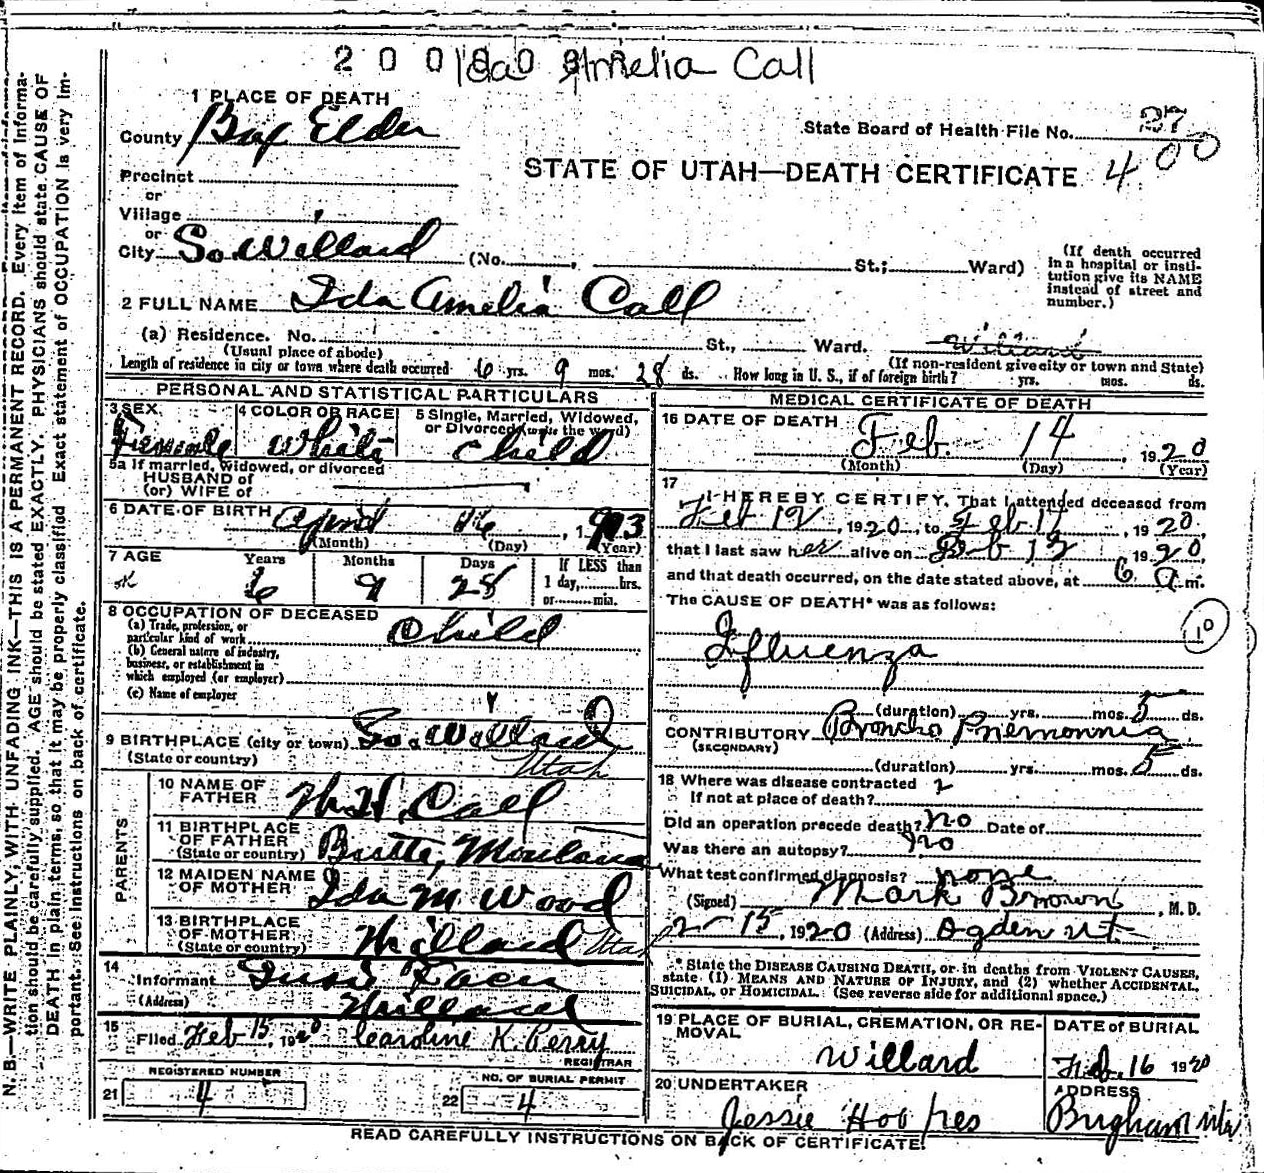 2 0 0 8 0 9 Ida Amelia Call
1 PLACE OF DEATH
County Box Elder
State Board of Health File No. 37
400
STATE OF UTAH—DEATH CERTIFICATE
Precinct
or
Village
or
City So. Willard (No. , St.; Ward)
(If death occurred in a hospital or institution give its NAME instead of street and number.)
2 FULL NAME Ida Amelia Call
(a) Residence. No. St., Ward. Willard
(Usual place of abode) (If non-resident give city or town and State)
Length of residence in city or town where death occurred 6 yrs. 9 mos. 28 ds. How long in U. S., if of foreign birth? yrs. mos. ds.
PERSONAL AND STATISTICAL PARTICULARS
3 SEX Female
4 COLOR OR RACE White
5 Single, Married, Widowed, or Divorced (write the word) child
5a If married, widowed, or divorced
HUSBAND of
(or) WIFE of
6 DATE OF BIRTH April 16, 1913
(Month) (Day) (Year)
7 AGE Years Months Days If LESS than
6 9 28 1 day, hrs.
or min.
8 OCCUPATION OF DECEASED
(a) Trade, profession, or
particular kind of work Child
(b) General nature of industry,
business, or establishment in
which employed (or employer)
(c) Name of employer
9 BIRTHPLACE (city or town) So. Willard
(State or country) Utah
PARENTS
10 NAME OF FATHER Call
11 BIRTHPLACE OF FATHER
(State or country) Butte, Montana
12 MAIDEN NAME OF MOTHER Ida M Wood
13 BIRTHPLACE OF MOTHER
(State or country) Willard Utah
14
Informant
(Address) Willard
15
Filed Feb 15, 1920 Caroline K. Perry
REGISTRAR
REGISTERED NUMBER
21 4
NO. OF BURIAL PERMIT
22 4
MEDICAL CERTIFICATE OF DEATH
16 DATE OF DEATH
Feb. 14 1920
(Month) (Day) (Year)
17
I HEREBY CERTIFY, That I attended deceased from
Feb 12, 1920, to Feb , 1920,
that I last saw her alive on Feb 13 1920,
and that death occurred, on the date stated above, at 6 a m.
The CAUSE OF DEATH* was as follows:
10
Ifluenza
(duration) yrs. mos. 5 ds.
CONTRIBUTORY Broncho Pnemonnia
(SECONDARY)
(duration) yrs. mos. 5 ds.
18 Where was disease contracted
If not at place of death? ?
Did an operation precede death? no Date of
Was there an autopsy? no
What test confirmed diagnosis? none
(Signed) Mark Brown, M. D.
2-15, 1920 (Address) Ogden Ut.
* State the DISEASE CAUSING DEATH, or in deaths from VIOLENT CAUSES,
state (1) MEANS AND NATURE OF INJURY, and (2) whether ACCIDENTAL,
SUICIDAL, or HOMICIDAL. (See reverse side for additional space.)
19 PLACE OF BURIAL, CREMATION, OR REMOVAL
Willard
DATE of BURIAL
Feb. 16 1920
20 UNDERTAKER
Jessie Hoopes
ADDRESS
Brigham Utah
READ CAREFULLY INSTRUCTIONS ON BACK OF CERTIFICATE.
N. B.—WRITE PLAINLY, WITH UNFADING INK—THIS IS A PERMANENT RECORD. Every item of information should be carefully supplied. AGE should be stated EXACTLY. PHYSICIANS should state CAUSE OF DEATH in plain terms, so that it may be properly classified. Exact statement of OCCUPATION is very important. See instructions on back of certificate.